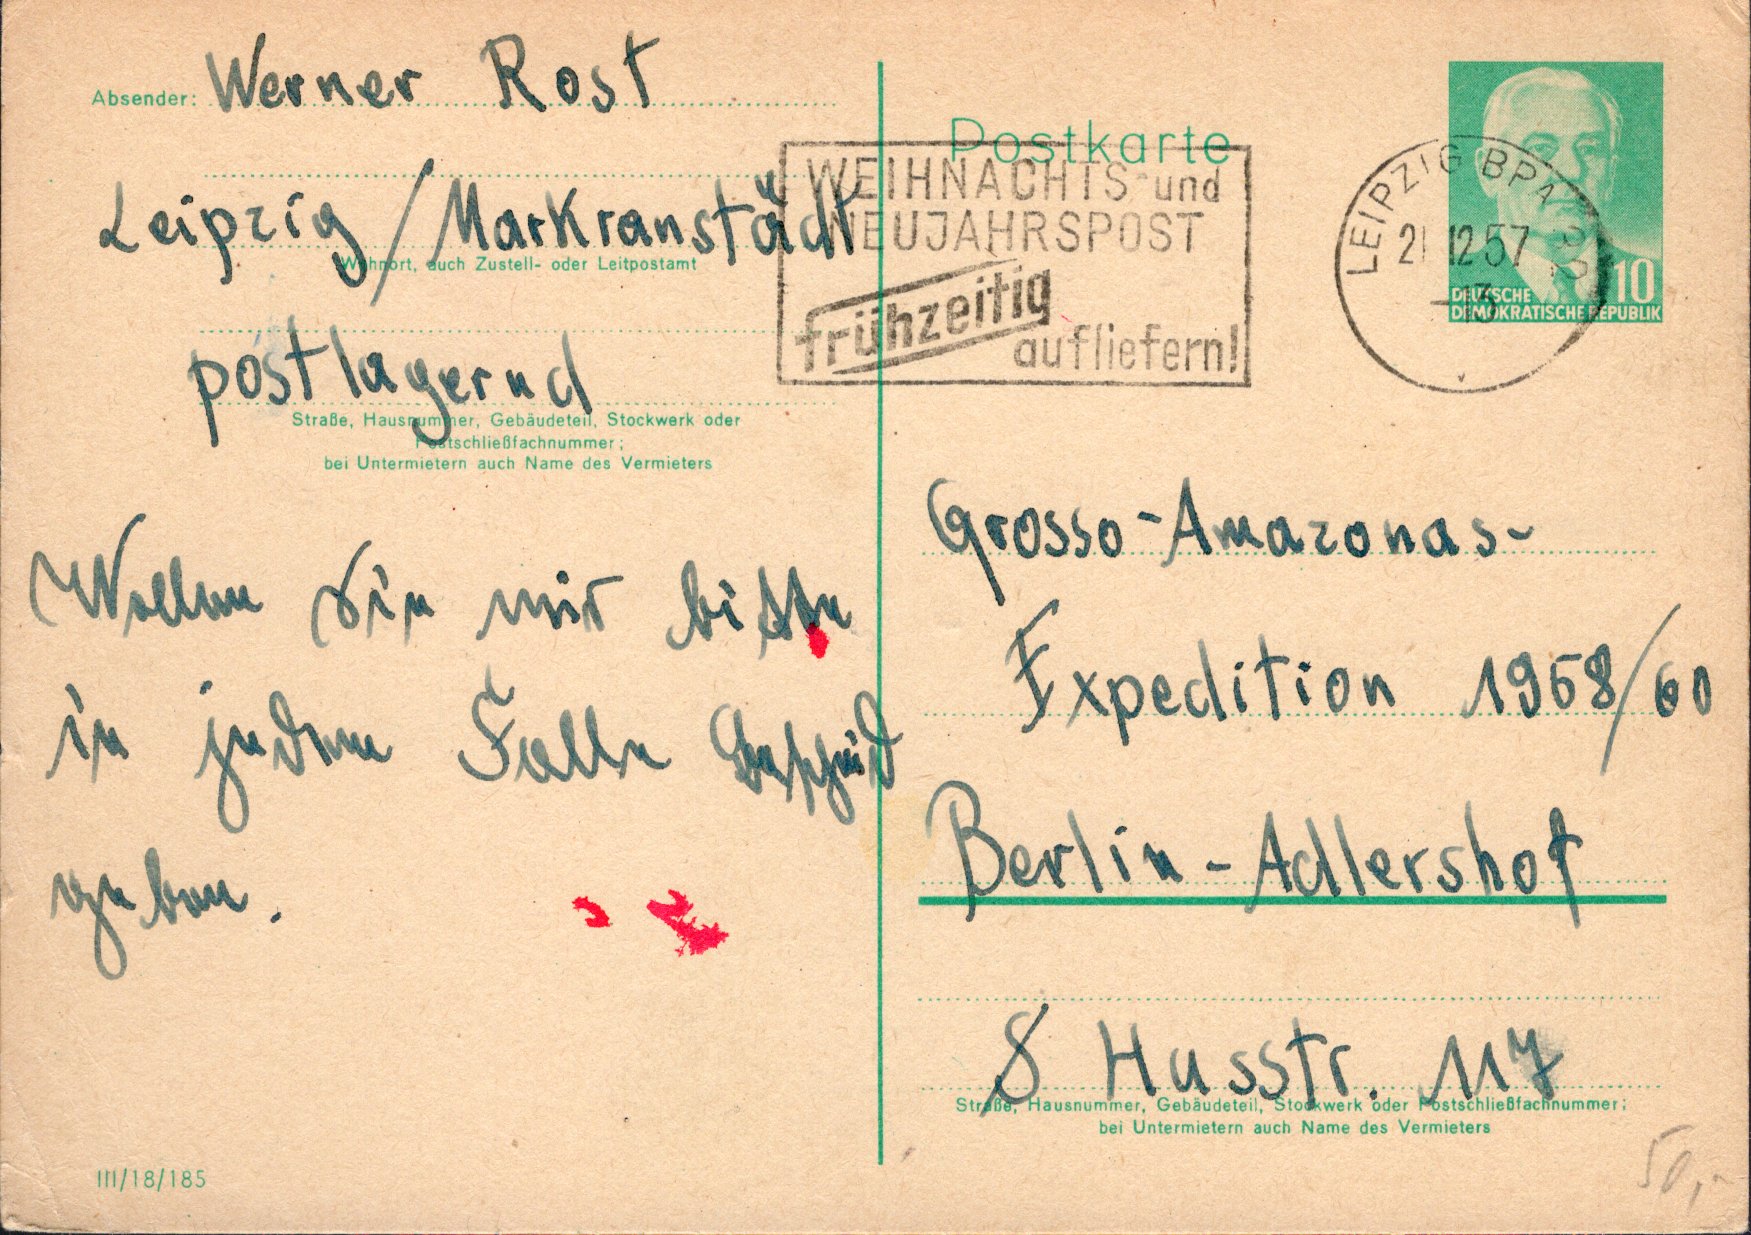 Absender: Werner Rost
Leipzig / Markranstädt
Wohnort, auch Zustell- oder Leitpostamt
postlagernd
Straße, Hausnummer, Gebäudeteil, Stockwerk oder
Postschließfachnummer;
bei Untermietern auch Name des Vermieters
Wollen Sie mir bitte
in jedem Falle Bescheid
geben.
III/18/185
Postkarte
WEIHNACHTS- und
NEUJAHRSPOST
frühzeitig
aufliefern!
LEIPZIG BPA 32
21.12.57
-13
10
DEUTSCHE
DEMOKRATISCHE REPUBLIK
Grosso-Amazonas-
Expedition 1958/60
Berlin-Adlershof
8 Husstr. 117
Straße, Hausnummer, Gebäudeteil, Stockwerk oder Postschließfachnummer;
bei Untermietern auch Name des Vermieters
50,-